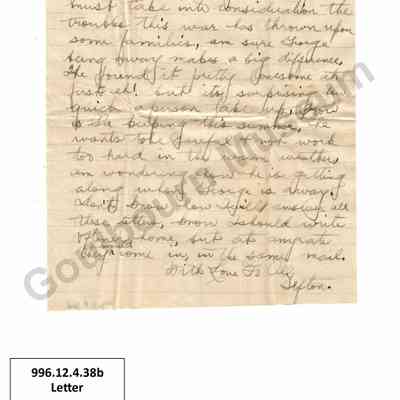 must take into consideration the
trouble this war has thrown upon
some families, am sure George
being away makes a big difference,
He found it pretty lonesome at
first eh! but its surprising how
quick a person take up. How
is he helping this summer. He
wants to be careful & not work
too hard in the warm weather,
am wondering how he is getting
along when George is away.
Don't know how I'll answer all
these letters, know I should write
home, but at any rate
they come in, in the same mail.
With Love To All,
Sefton.
Goulbourn Museum
996.12.4.38b
Letter